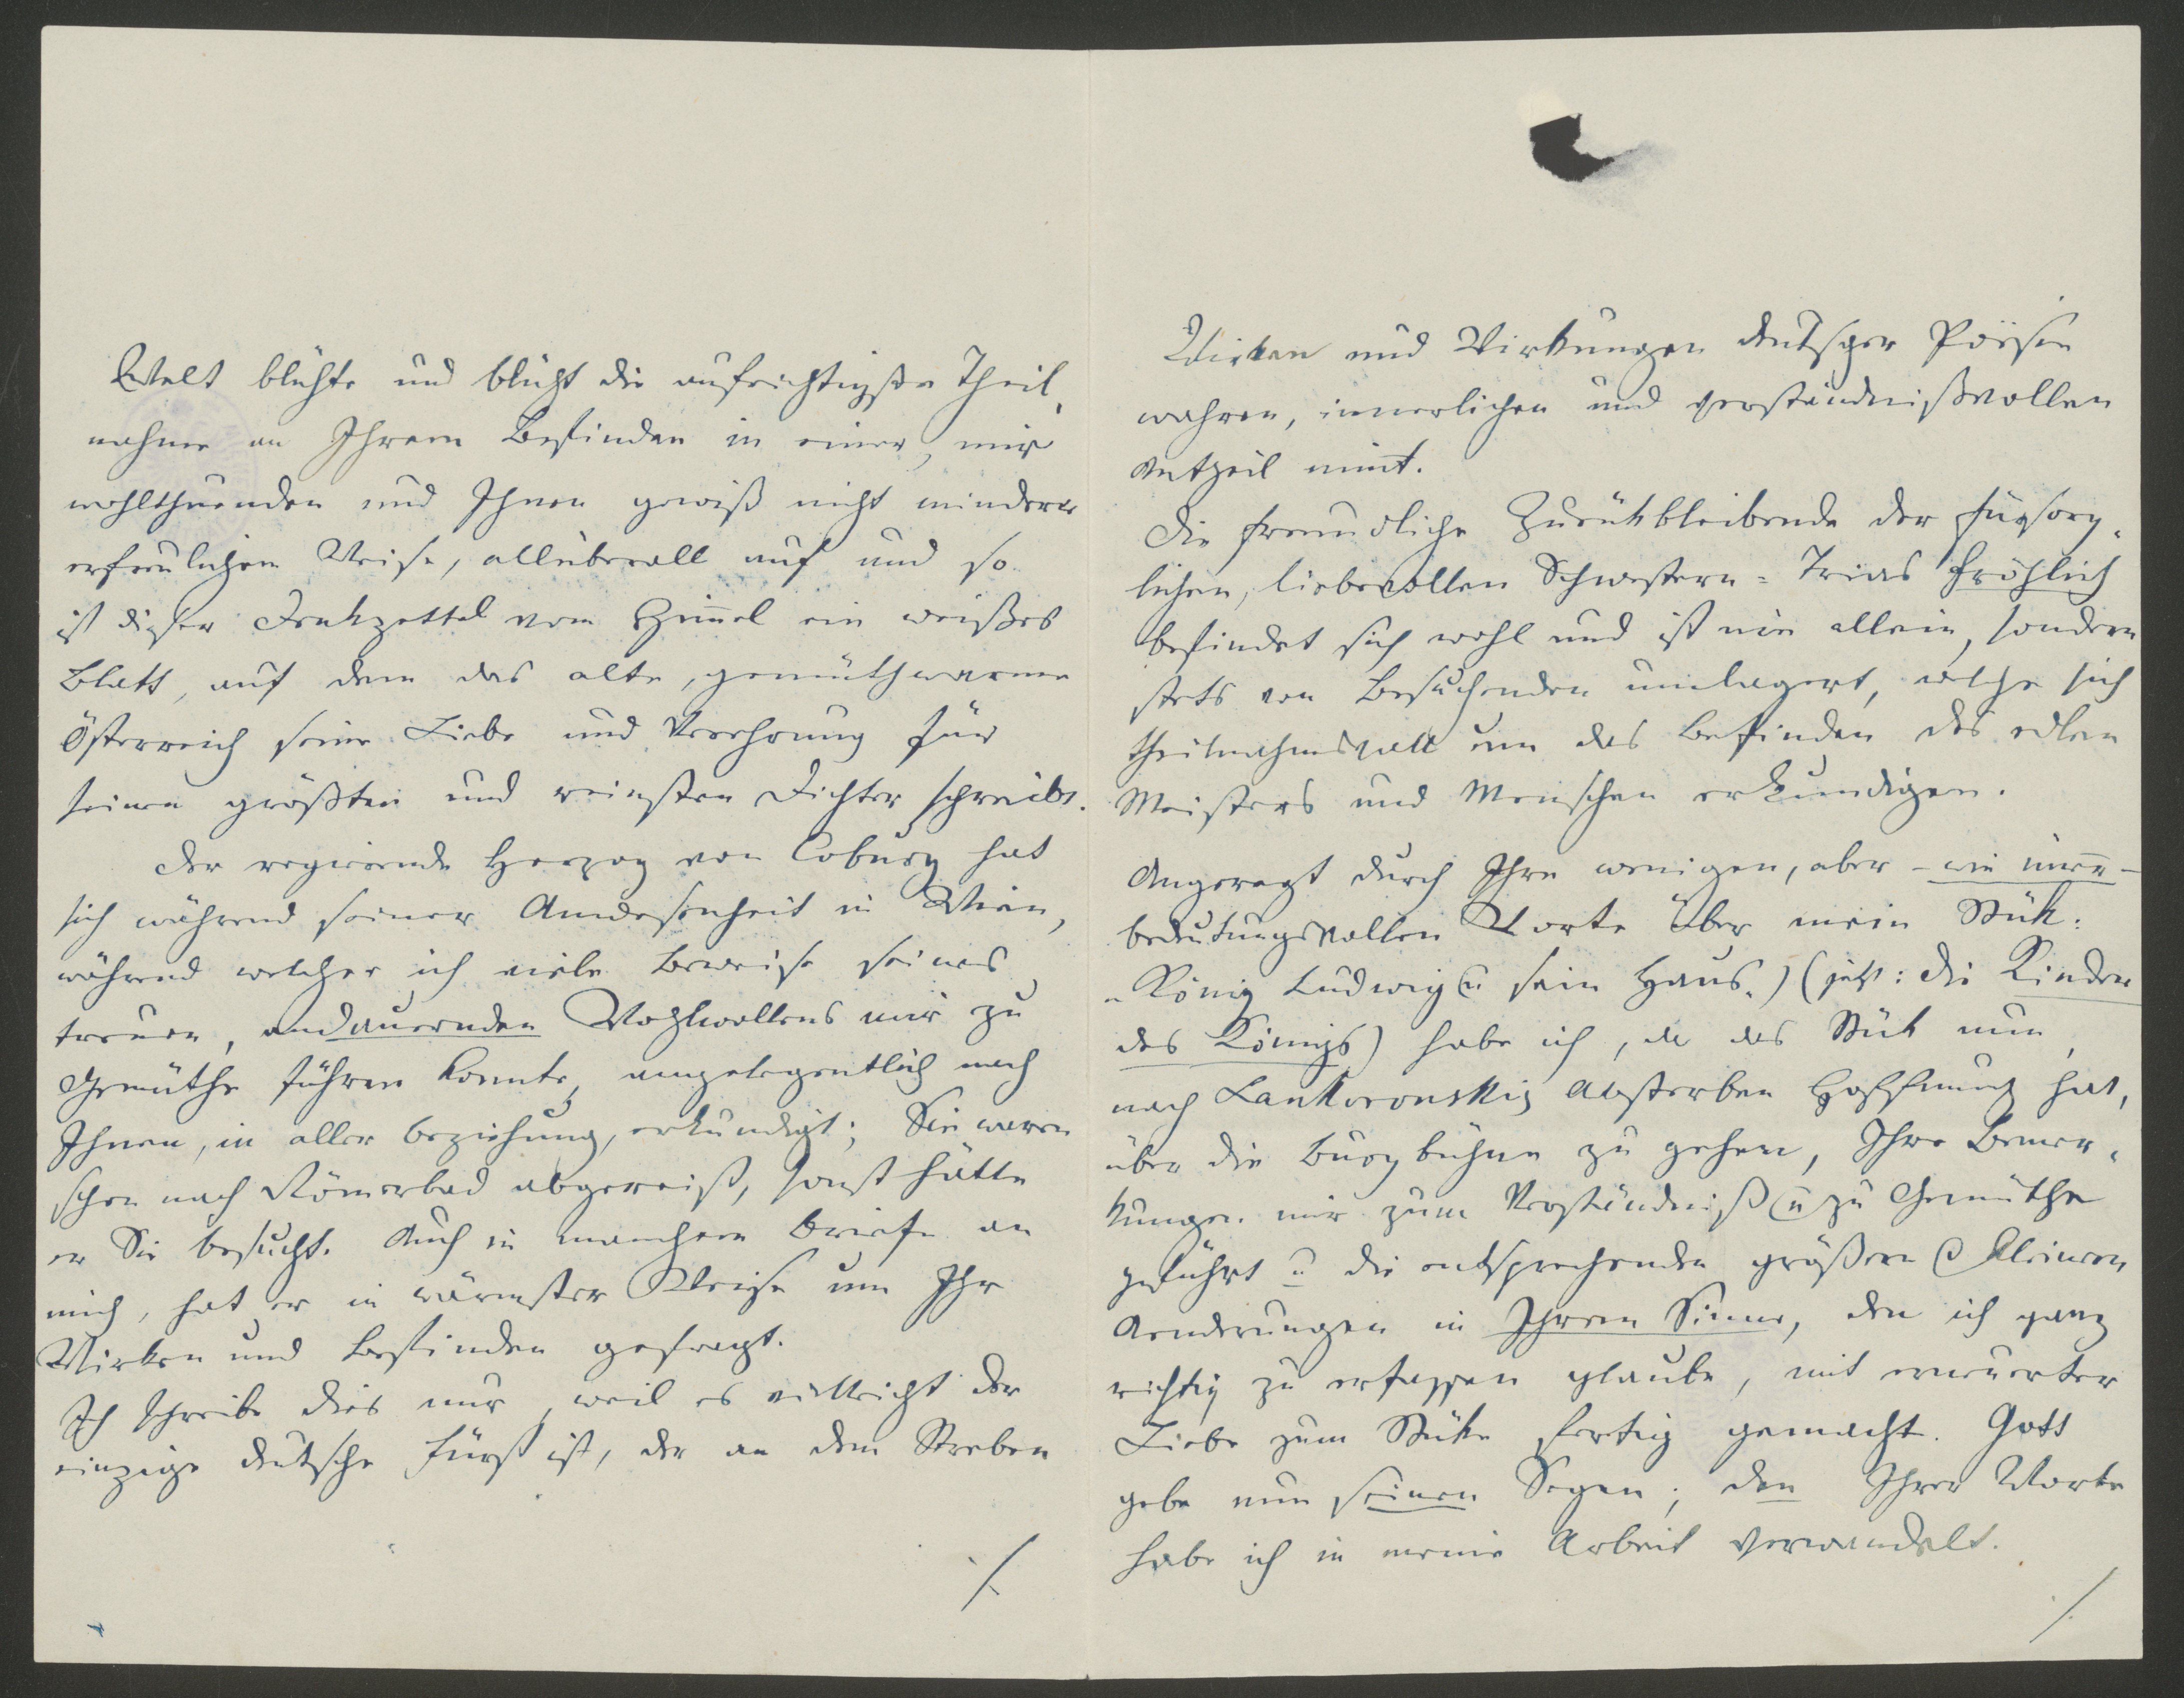 Welt blühte und blüht die aufrichtigste Theil-
nahme an Ihrem Befinden in einer, mir
wohlthuenden und Ihnen gewiß nicht minder
erfreulichen Weise, allüberall auf und so
ist dieser Denkzettel vom Himmel ein weißes
Blatt, auf dem das alte, gemüthwarme
Österreich seine Liebe und Verehrung für
seinen größten und reinsten Dichter schreibt.
Der regierende Herzog von Coburg hat
sich während seiner Anwesenheit in Wien,
während welcher ich viele Beweise seines
treuen, andauernden Wohlwollens mir zu
Gemüthe führen konnte, angelegentlich nach
Ihnen, in aller Beziehung, erkundigt; Sie waren
schon nach Römerbad abgereist, sonst hätte
er Sie besucht. Auch in manchem Briefe an
mich, hat er in wärmster Weise um Ihr
Wirken und Befinden gefragt.
Ich schreibe dies nur, weil es vielleicht der
einzige deutsche Fürst ist, der an dem Streben
/.
Wirken und Wirkungen deutscher Poësie
wahren, innerlichen und verständnißvollen
Antheil nimt.
Die freundliche Zurükbleibende der fürsorg-
lichen, liebevollen Schwestern-Trias Fröhlich
befindet sich wohl und ist nie allein, sondern
stets von Besuchenden umlagert, welche sich
theilnahmsvoll um das Befinden des edlen
Meisters und Menschen erkundigen.
Angeregt durch Ihre wenigen, aber - wie imer -
bedeutungsvollen Worte über mein Stük:
"König Ludwig u sein Haus" (jetzt: die Kinder
des Königs) habe ich, da das Stük nun,
nach Lankoronskis Absterben Hoffnung hat,
über die Burgbühne zu gehen, Ihre Bemer-
kungen mir zum Verständniß u zu Gemüthe
geführt u die entsprechenden größern u kleinern
Aenderungen in Ihrem Sinne, den ich ganz
richtig zu erfassen glaube, mit erneuerter
Liebe zum Stüke fertig gemacht. Gott
gebe nun seinen Segen; den Ihrer Worte
habe ich in meine Arbeit verwandelt.
/.